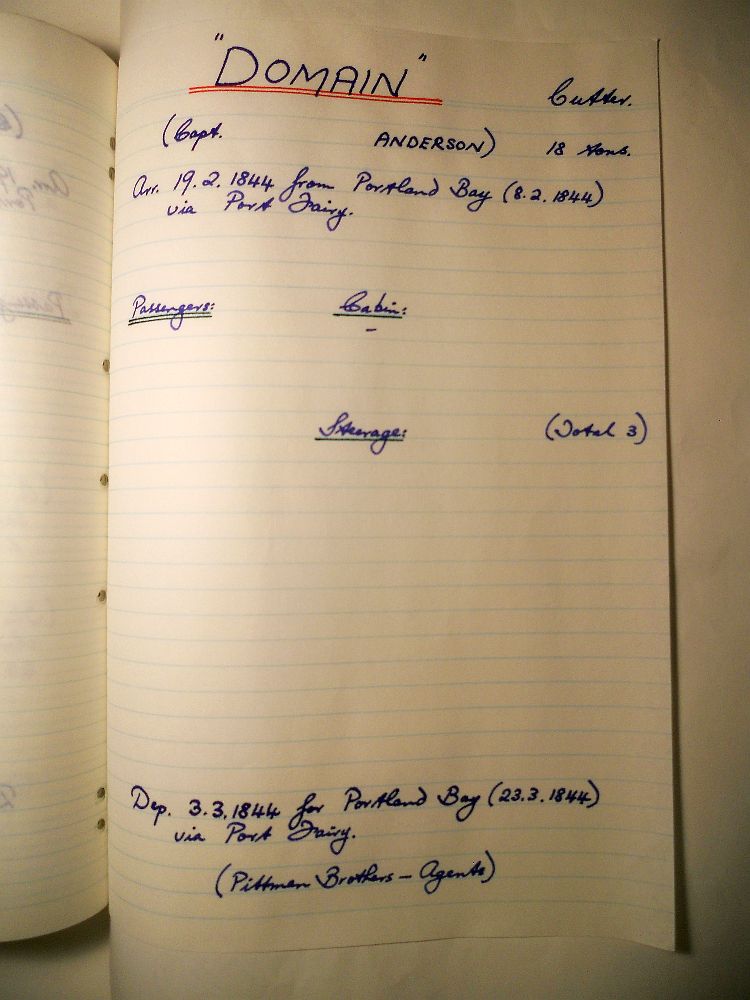 "DOMAIN"
Cutter.
(Capt. ANDERSON) 18 tons.
Arr. 19.2.1844 from Portland Bay (8.2.1844)
via Port Fairy.
Passengers: Cabin:
–
Steerage: (Total 3)
Dep. 3.3.1844 for Portland Bay (23.3.1844)
via Port Fairy.
(Pittman Brothers – Agents)